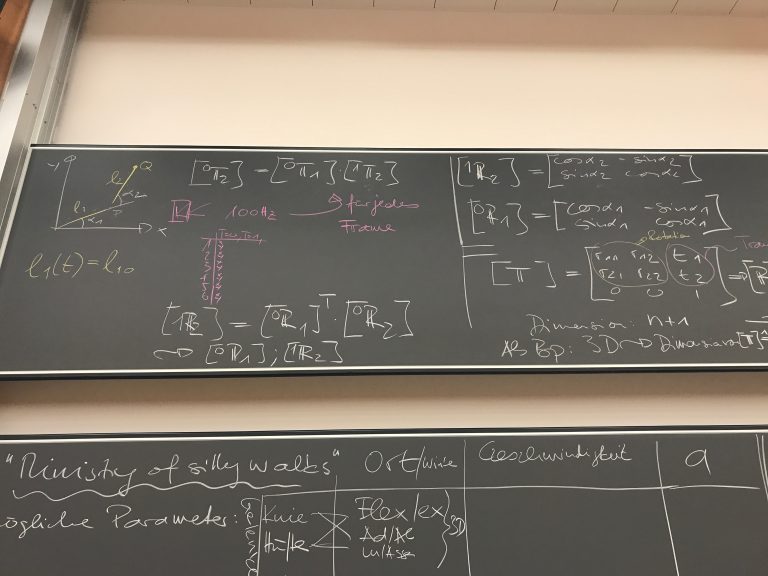 y
l₂
Q
α₂
l₁
P
α₁
x
l₁(t) = l₁₀
[⁰T₂] = [⁰T₁]·[¹T₂]
100Hz → für jedes
Frame
1
2
3
4
5
6
[¹R₂] = [⁰R₁]ᵀ·[⁰R₂]
[⁰R₁] ; [¹R₂]
[¹R₂] = [cosα₂ -sinα₂
sinα₂ cosα₂]
[⁰R₁] = [cosα₁ -sinα₁
sinα₁ cosα₁]
Rotation
[T] = [r₁₁ r₁₂ t₁
r₂₁ r₂₂ t₂
0 0 1]
Dimension: n+1
Als Bp: 3D → Dimension
"Ministry of silly walks"
Ort/Winkel
Geschwindigkeit
a
ögliche Parameter:
Knie
Hüfte
Flex/ex
Ad/Ab
3D